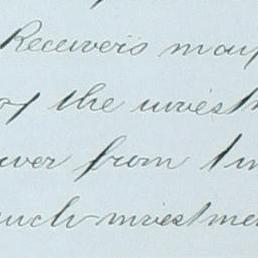 Receivers may
of the invest
wer from tim
such investmen